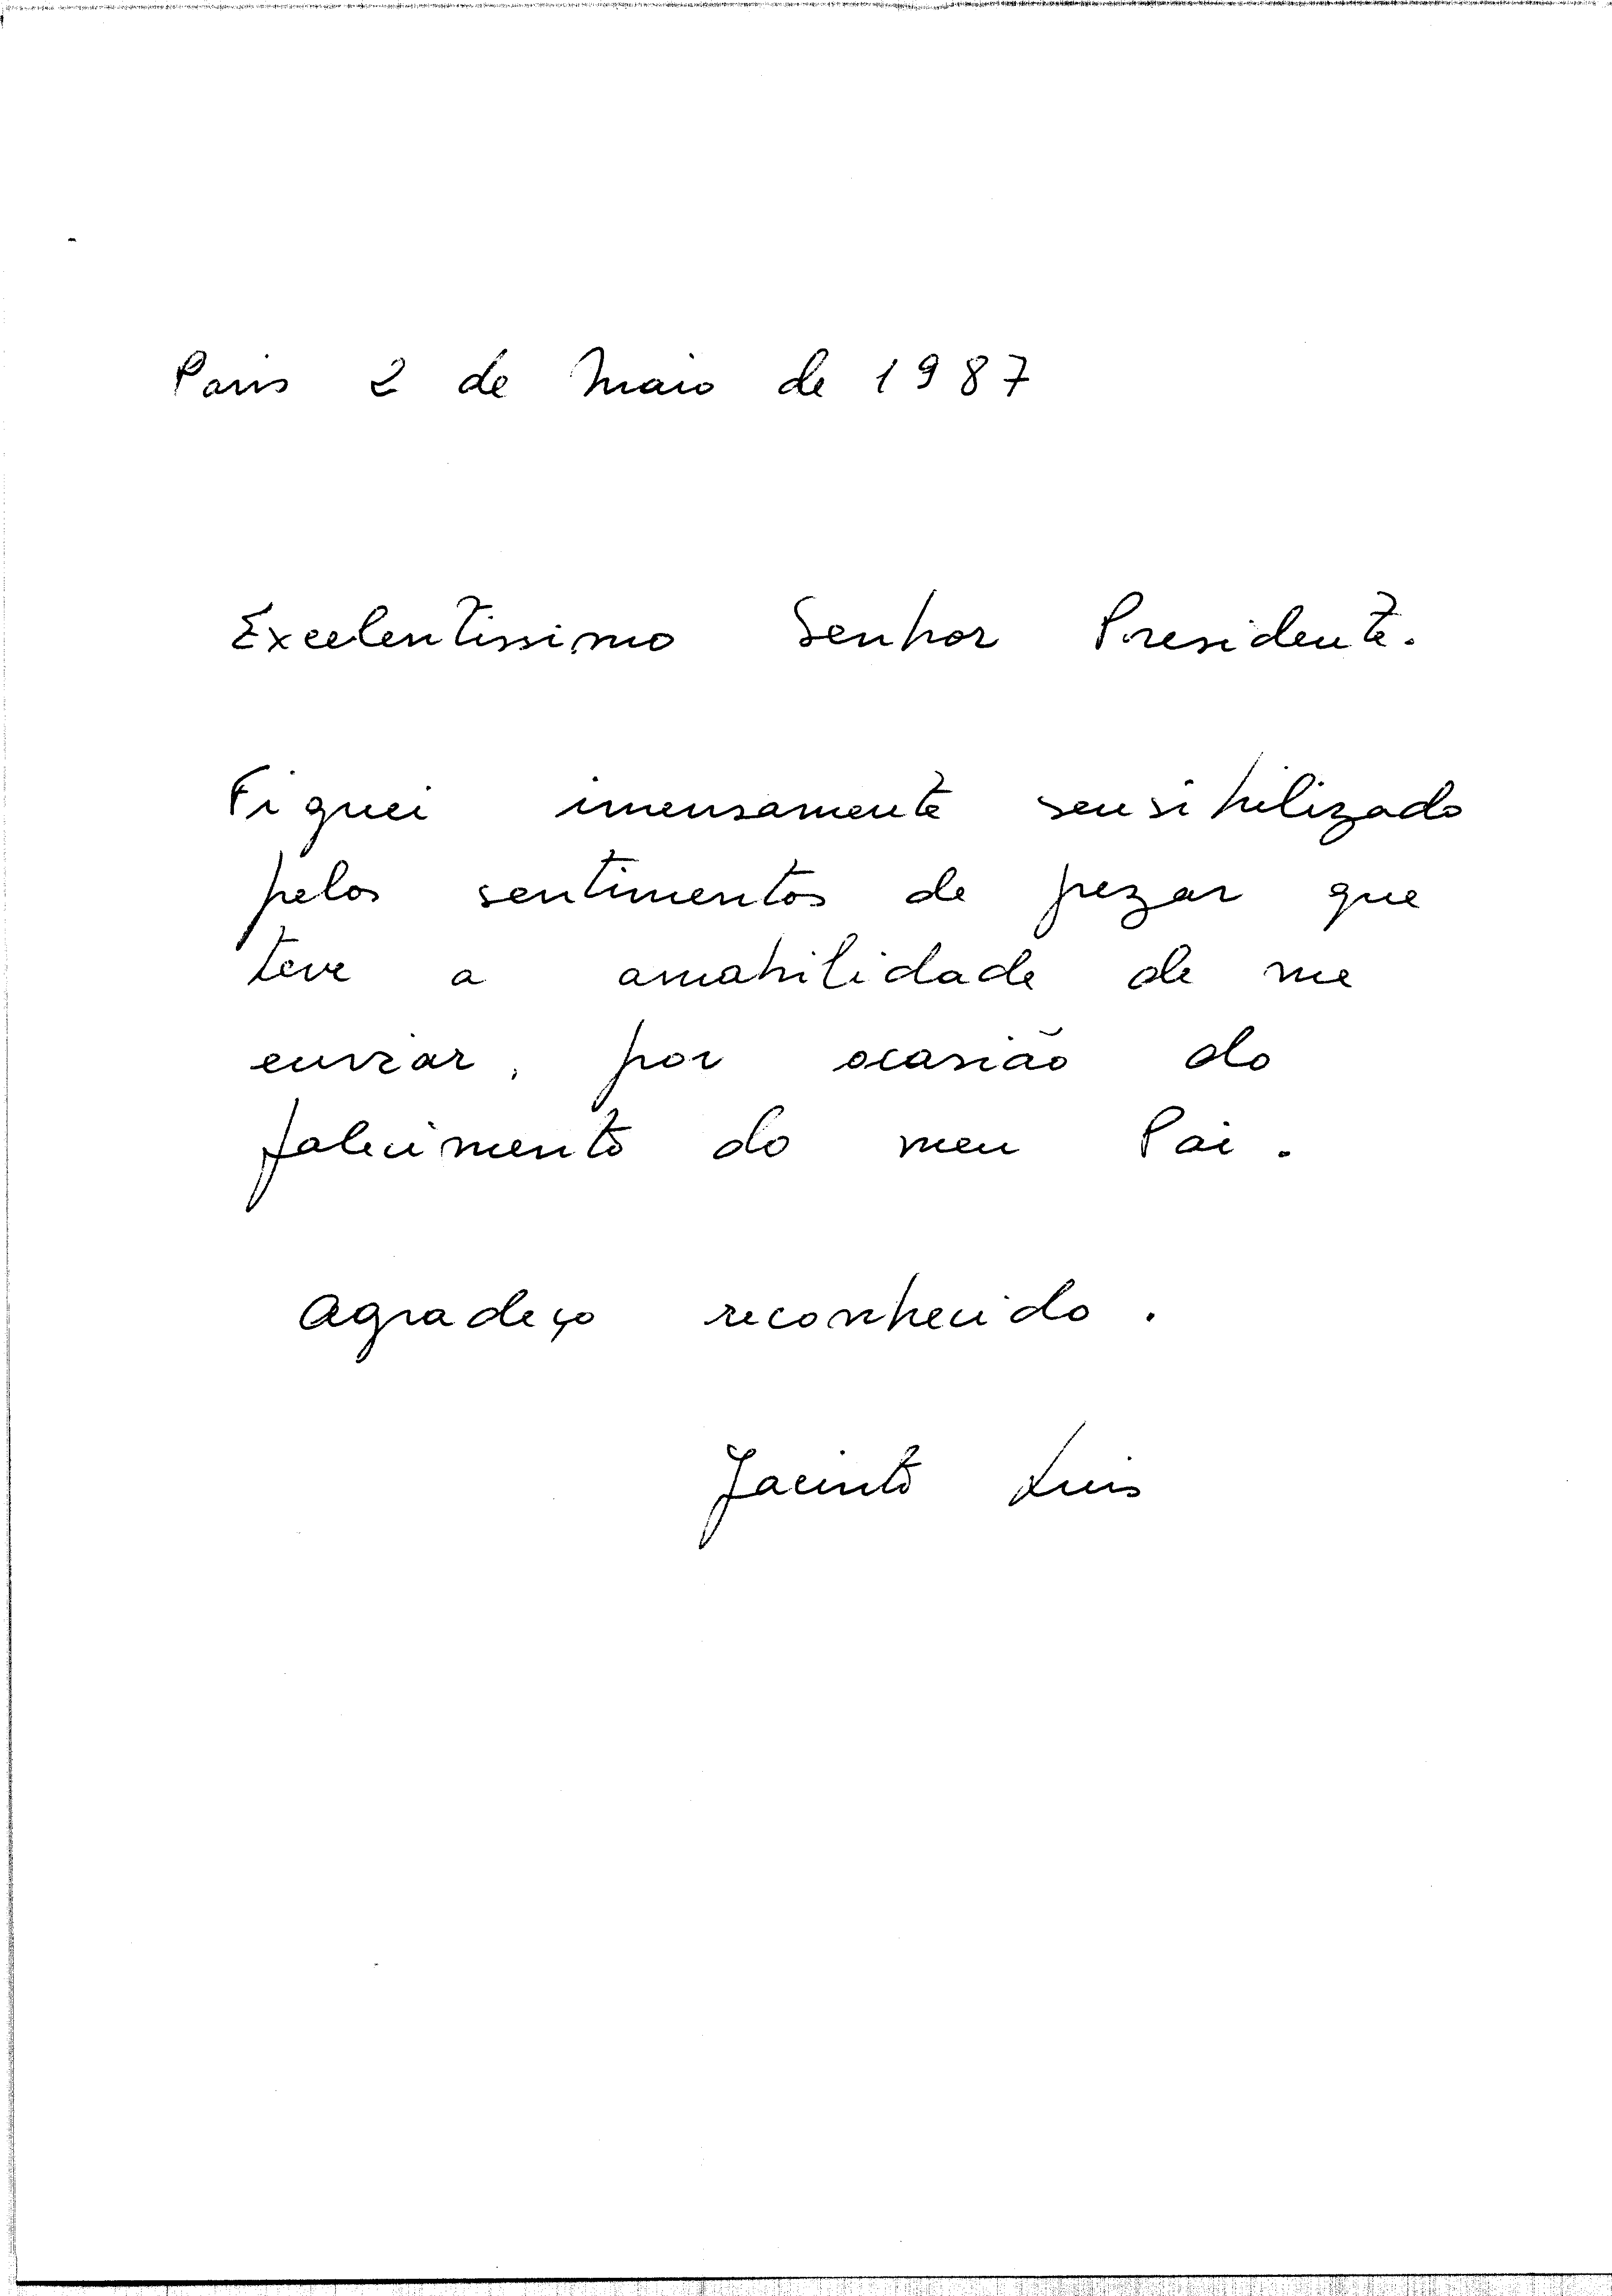 Paris 2 de Maio de 1987
Excelentissimo Senhor Presidente.
Fiquei imensamente sensibilizado
pelos sentimentos de pezar que
teve a amabilidade de me
enviar, por ocasião do
falecimento do meu Pai.
Agradeço reconhecido.
Jacinto Luis